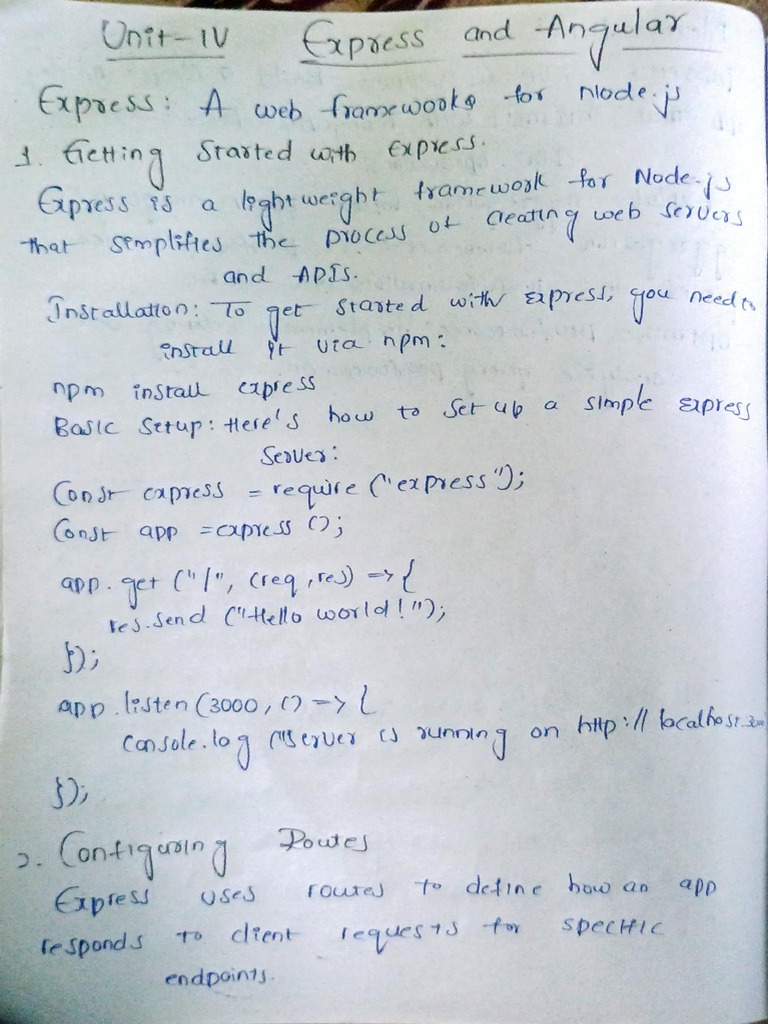 Unit-IV Express and Angular
Express: A web framework for Node.js
1. Getting Started with Express.
Express is a lightweight framework for Node.js
that simplifies the process of creating web servers
and APIs.
Installation: To get started with express, you need to
install it via npm:
npm install express
Basic Setup: Here's how to set up a simple express
Server:
Const express = require ("express");
Const app = express ();
app.get ("/", (req, res) => {
res.send ("Hello world!");
});
app.listen (3000, () => {
Console.log ("Server is running on http://localhost:3000
});
2. Configuring Routes
Express uses routes to define how an app
responds to client requests for specific
endpoints.